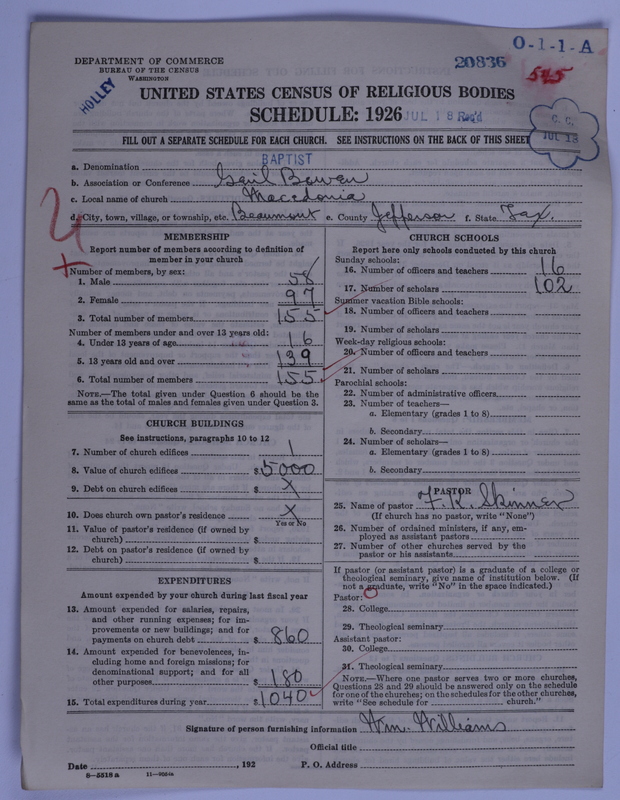 O-1-1-A
DEPARTMENT OF COMMERCE
BUREAU OF THE CENSUS
WASHINGTON
20836
545
HOLLEY
UNITED STATES CENSUS OF RELIGIOUS BODIES
SCHEDULE: 1926
JUL 18 Rec'd
C. C.
JUL 18
FILL OUT A SEPARATE SCHEDULE FOR EACH CHURCH. SEE INSTRUCTIONS ON THE BACK OF THIS SHEET
a. Denomination BAPTIST
b. Association or Conference Gail Bowen
c. Local name of church Macedonia
d. City, town, village, or township, etc. Beaumont e. County Jefferson f. State Tax.
MEMBERSHIP
Report number of members according to definition of
member in your church
Number of members, by sex:
1. Male 58
2. Female 97
3. Total number of members 155
Number of members under and over 13 years old:
4. Under 13 years of age 16
5. 13 years old and over 139
6. Total number of members 155
NOTE.—The total given under Question 6 should be
same as the total of males and females given under Question 3.
CHURCH BUILDINGS
See instructions, paragraphs 10 to 12
7. Number of church edifices 1
8. Value of church edifices $5000
9. Debt on church edifices $ X
10. Does church own pastor's residence X
Yes or No
11. Value of pastor's residence (if owned by
church) $
12. Debt on pastor's residence (if owned by
church) $
EXPENDITURES
Amount expended by your church during last fiscal year
13. Amount expended for salaries, repairs,
and other running expenses; for im-
provements or new buildings; and for
payments on church debt $ 860
14. Amount expended for benevolences, in-
cluding home and foreign missions; for
denominational support; and for all
other purposes $ 180
15. Total expenditures during year $ 1040
CHURCH SCHOOLS
Report here only schools conducted by this church
Sunday schools:
16. Number of officers and teachers 16
17. Number of scholars 102
Summer vacation Bible schools:
18. Number of officers and teachers
19. Number of scholars
Week-day religious schools:
20. Number of officers and teachers
21. Number of scholars
Parochial schools:
22. Number of administrative officers
23. Number of teachers—
a. Elementary (grades 1 to 8)
b. Secondary
24. Number of scholars—
a. Elementary (grades 1 to 8)
b. Secondary
PASTOR
25. Name of pastor F. K. Skinner
(If church has no pastor, write "None")
26. Number of ordained ministers, if any, em-
ployed as assistant pastors
27. Number of other churches served by the
pastor or his assistants
If pastor (or assistant pastor) is a graduate of a college or
theological seminary, give name of institution below. (If
not a graduate, write "No" in the space indicated.)
Pastor:
28. College
29. Theological seminary
Assistant pastor:
30. College
31. Theological seminary
NOTE.—Where one pastor serves two or more churches,
Questions 28 and 29 should be answered only on the schedule
for one of the churches; on the schedules for the other churches,
write "See schedule for church."
Signature of person furnishing information Wm. Williams
Official title
Date , 192 P. O. Address
8—5518 a